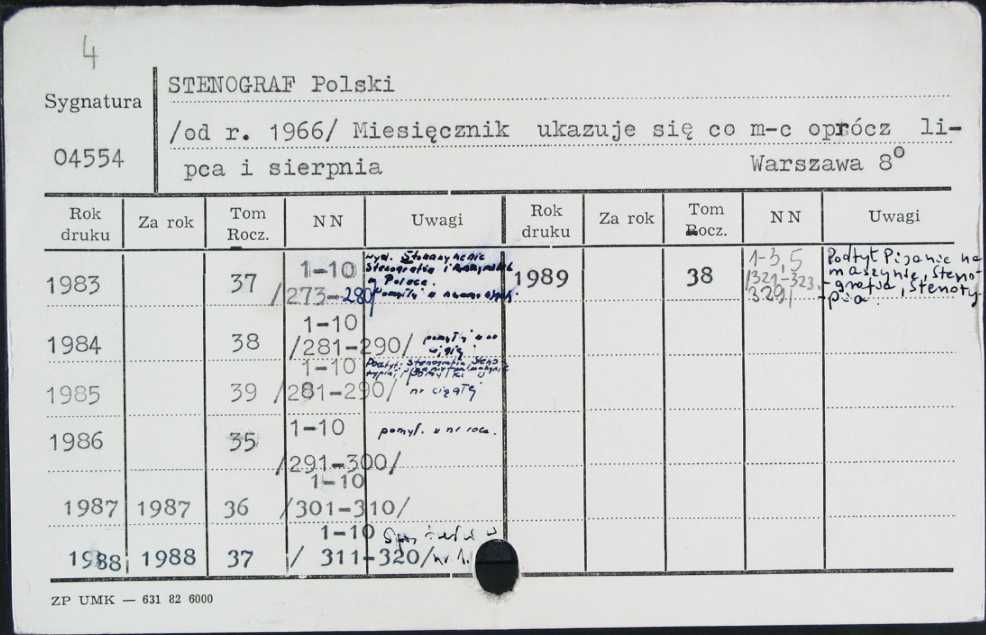 4
STENOGRAF Polski
Sygnatura
/od r. 1966/ Miesięcznik ukazuje się co m-c oprócz li-
04554
pca i sierpnia Warszawa 8°
Rok druku Za rok Tom Rocz. NN Uwagi Rok druku Za rok Tom Rocz. NN Uwagi
1983 37 1-10 /273-280/ wyd. Stowarzyszenie Stenografów i Maszynistek w Polsce. 1989 38 1-3, 5 /321-323, 329/ Podtyt Pisanie na maszynie, Steno-grafia, Stenotypia
1984 38 1-10 /281-290/ pomyłki w nr ciągłej
1985 39 1-10 /281-290/ Podtyt: Stenografia, Stenotypia, pomyłki w nr ciągłej
1986 35 1-10 /291-300/ pomył. w nr rocz.
1987 1987 36 1-10 /301-310/
1988 1988 37 1-10 / 311-320/ nr 1.
ZP UMK — 631 82 6000